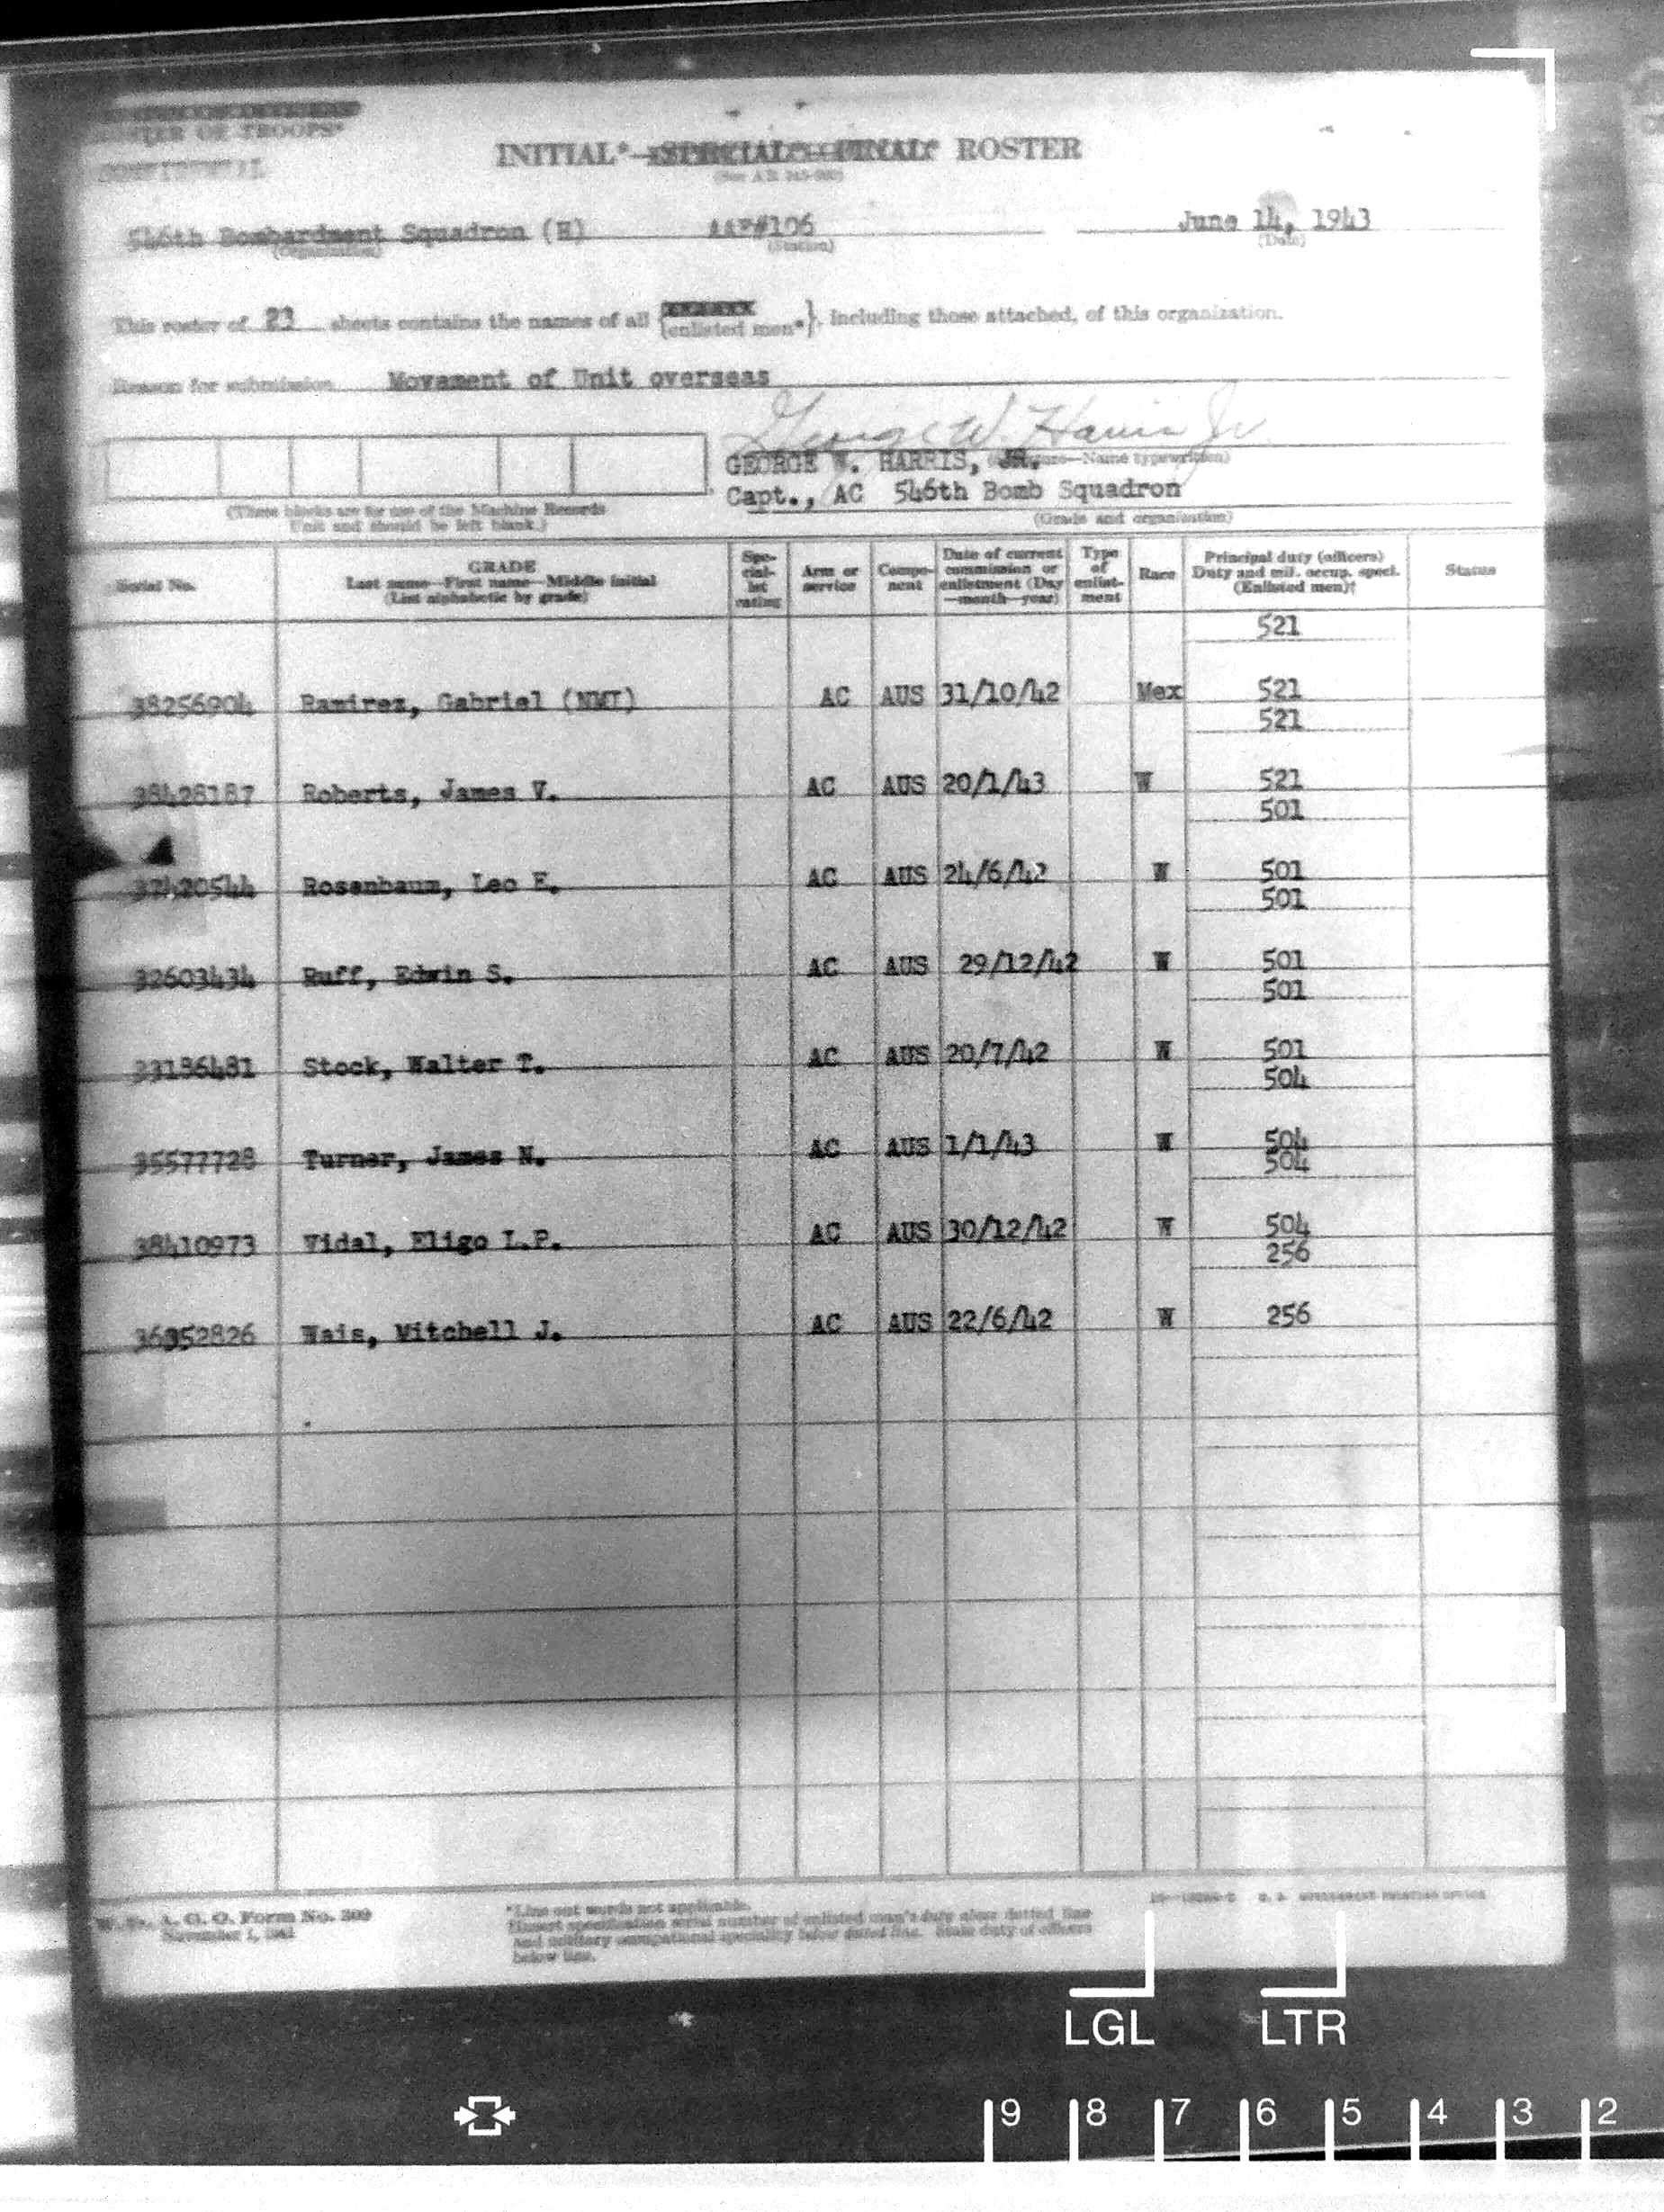 ROSTER OF TROOPS*
CONFIDENTIAL
INITIAL*—SPECIAL*—FINAL* ROSTER
(See AR 345-900)
546th Bombardment Squadron (H) AAF#106 June 14, 1943
(Organization) (Station) (Date)
This roster of 23 sheets contains the names of all {enlisted men*}, including those attached, of this organization.
Reason for submission Movement of Unit overseas
George W. Harris Jr
GEORGE W. HARRIS, JR. (Signature—Name typewritten)
Capt., AC 546th Bomb Squadron
(Grade and organization)
(These blocks are for use of the Machine Records
Unit and should be left blank.)
Serial No. GRADE Last name—First name—Middle initial (List alphabetic by grade) Specialist rating Arm or service Component Date of current commission or enlistment (Day—month—year) Type of enlistment Race Principal duty (officers) Duty and mil. occup. specl. (Enlisted men)† Status
521
38256904 Ramirez, Gabriel (NMI) AC AUS 31/10/42 Mex 521
521
38428187 Roberts, James V. AC AUS 20/1/43 W 521
501
32420544 Rosenbaum, Leo E. AC AUS 24/6/42 W 501
501
32603434 Ruff, Edwin S. AC AUS 29/12/42 W 501
501
33186481 Stock, Walter T. AC AUS 20/7/42 W 501
504
35577728 Turner, James N. AC AUS 1/1/43 W 504
504
38410973 Vidal, Eligo L.P. AC AUS 30/12/42 W 504
256
36352826 Wais, Mitchell J. AC AUS 22/6/42 W 256
W. D., A. G. O. Form No. 309
November 1, 1941
*Line out words not applicable.
†Insert specification serial number of enlisted man's duty above dotted line
and military occupational specialty below dotted line. State duty of officers
below line.
U. S. GOVERNMENT PRINTING OFFICE
LGL LTR
9 8 7 6 5 4 3 2